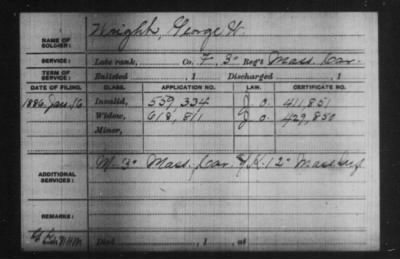 NAME OF SOLDIER: Wright, George W.
SERVICE: Late rank, Co. F, 3" Reg't Mass. Cav.
TERM OF SERVICE: Enlisted , 1 Discharged , 1
DATE OF FILING. CLASS. APPLICATION NO. LAW. CERTIFICATE NO.
1886, Jan. 16 Invalid, 559,334 J O. 411,851
Widow, 618,811 J O. 429,850
Minor,
ADDITIONAL SERVICES: M. 3" Mass. Cav. & K. 12" Mass Inf
REMARKS:
Died , 1 , at